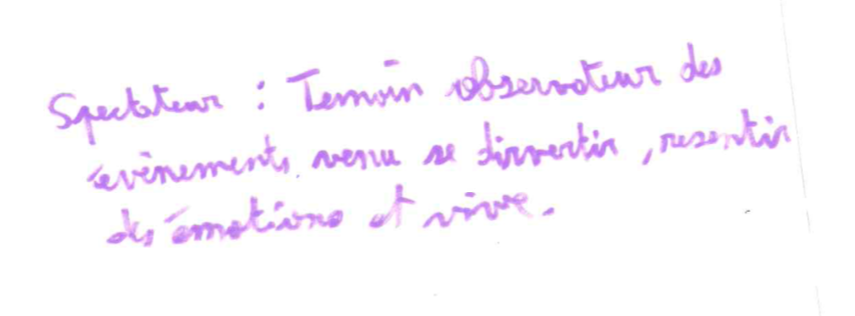 Spectateur : Temoin observateur des
évènements venu se divertir, resentir
des émotions et vivre.